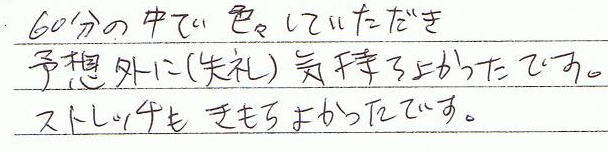 60分の中でい色々していただき
予想外に(失礼)気持ちよかったです。
ストレッチもきもちよかったです。